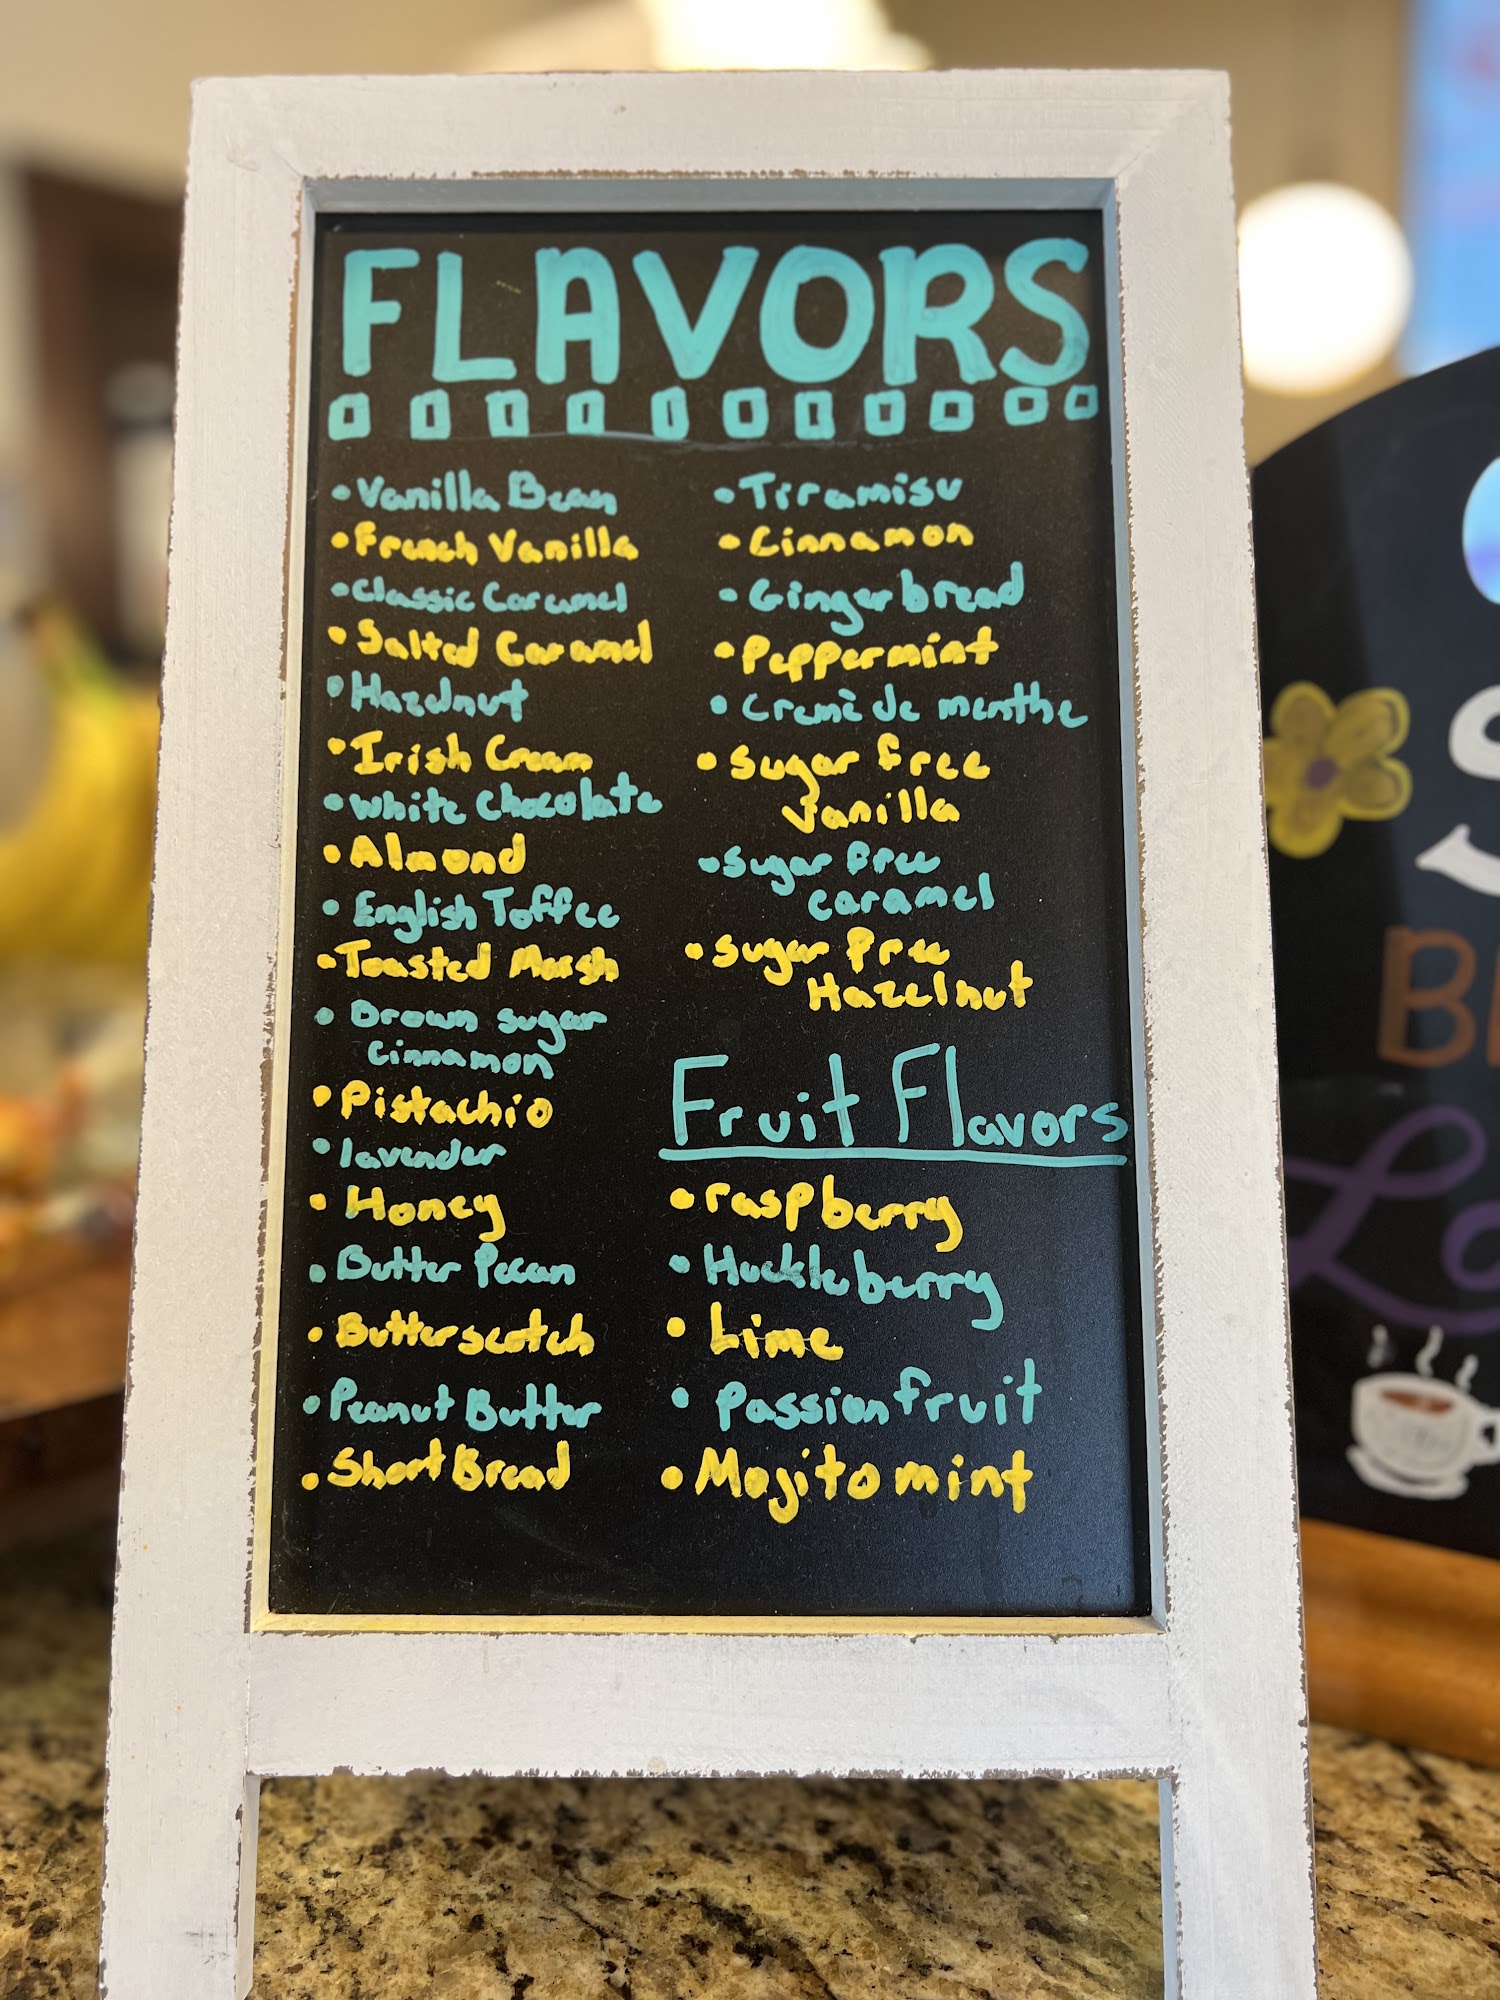 FLAVORS
• Vanilla Bean
• French Vanilla
• Classic Caramel
• Salted Caramel
• Hazelnut
• Irish Cream
• White Chocolate
• Almond
• English Toffee
• Toasted Marsh
• Brown sugar
Cinnamon
• Pistachio
• lavender
• Honey
• Butter Pecan
• Butterscotch
• Peanut Butter
• Short Bread
• Tiramisu
• Cinnamon
• Gingerbread
• Peppermint
• Cremè de menthe
• Sugar free
Vanilla
• Sugar free
caramel
• Sugar free
Hazelnut
Fruit Flavors
• raspberry
• Huckleberry
• Lime
• Passionfruit
• Mojito mint